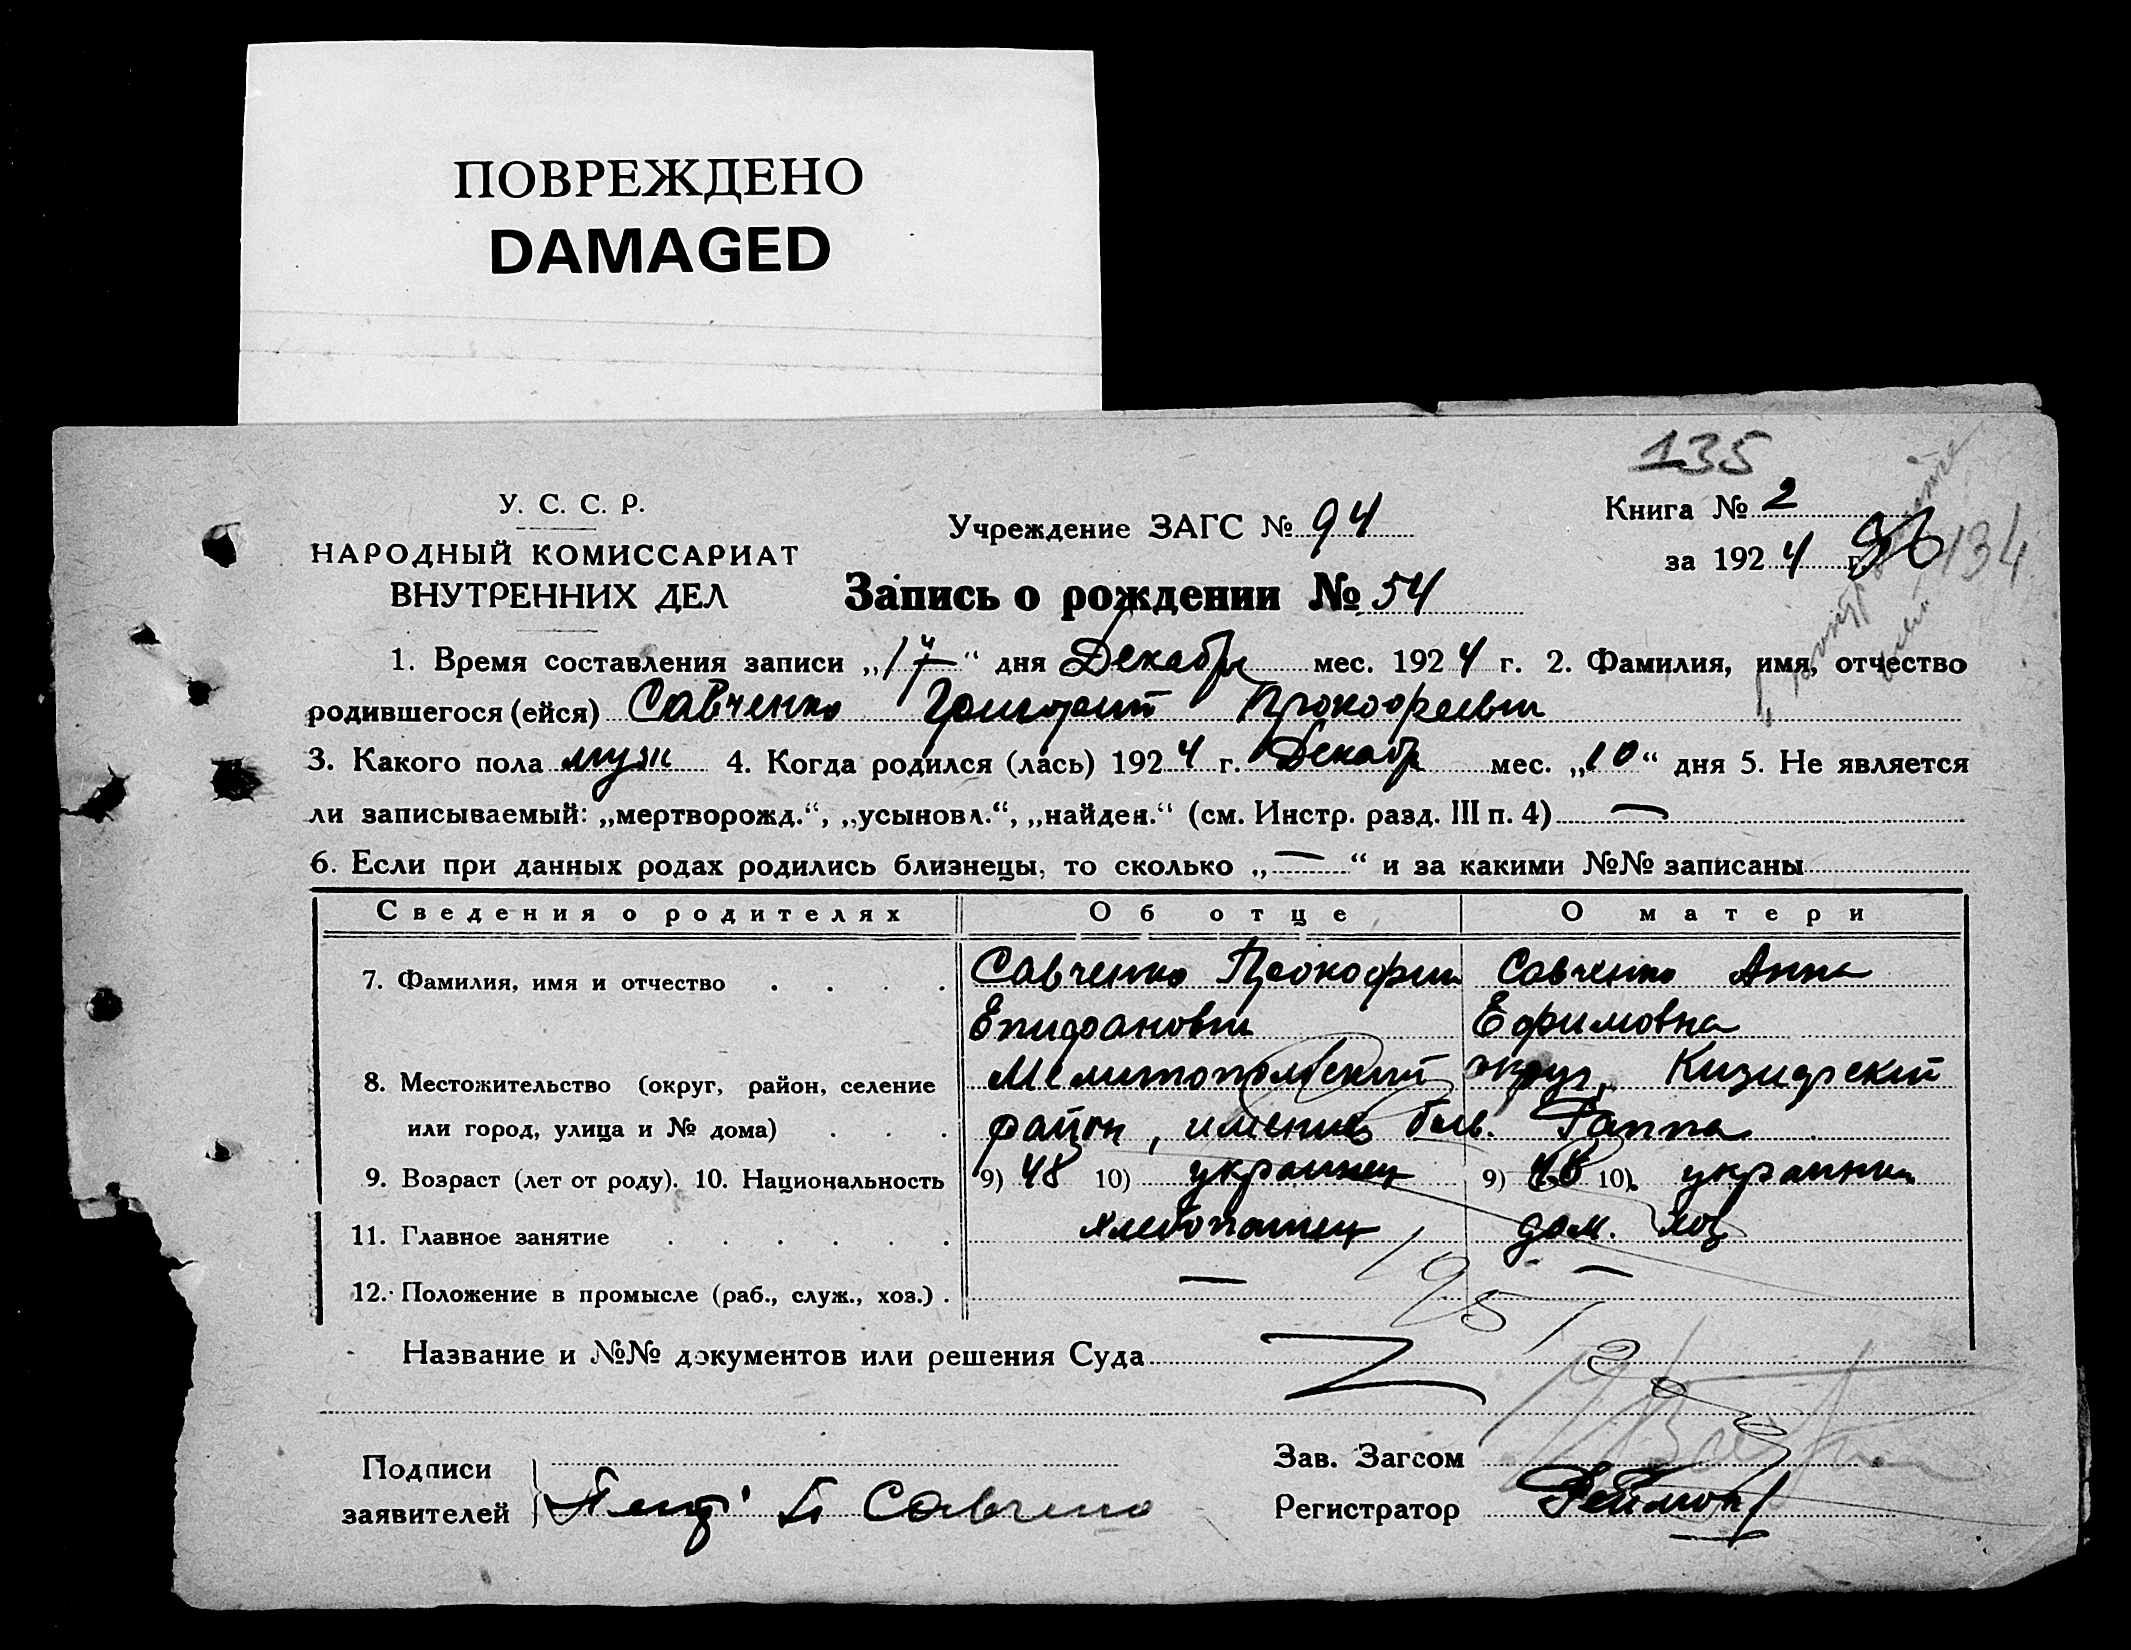 ПОВРЕЖДЕНО
DAMAGED
135
У. С. С. Р.
НАРОДНЫЙ КОМИССАРИАТ
ВНУТРЕННИХ ДЕЛ
Учреждение ЗАГС № 94
Книга № 2
за 1924 г.
134
Запись о рождении № 54
1. Время составления записи „17“ дня Декабря мес. 1924 г. 2. Фамилия, имя, отчество
родившегося (ейся) Савченко Григорий Прокофьевич
3. Какого пола муж 4. Когда родился (лась) 1924 г. Декабр мес. „10“ дня 5. Не является
ли записываемый: „мертворожд.“, „усыновл.“, „найден.“ (см. Инстр. разд. III п. 4) —
6. Если при данных родах родились близнецы, то сколько „—“ и за какими №№ записаны
Сведения о родителях Об отце О матери
7. Фамилия, имя и отчество Савченко Прокофий Савченко Анна
Епифанович Ефимовна
8. Местожительство (округ, район, селение Мелитопольский округ,
или город, улица и № дома) район, имение бывш. Раппа
9. Возраст (лет от роду). 10. Национальность 9) 48 10) украинец 9) 10) украинка
11. Главное занятие хлебопашец дом. хоз
12. Положение в промысле (раб., служ., хоз.) — —
Название и №№ документов или решения Суда
Подписи
заявителей П Савченко
Зав. Загсом
Регистратор